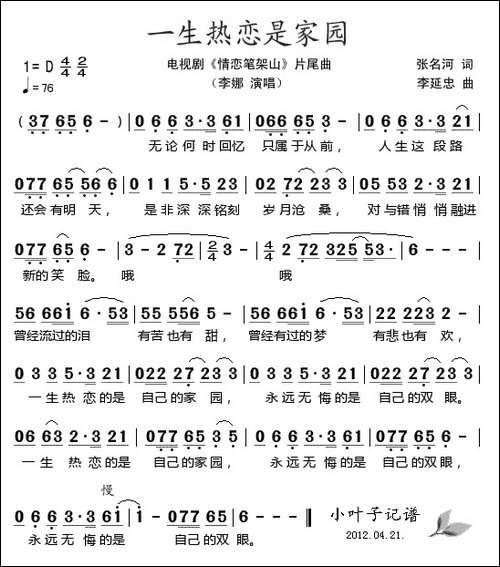 一生热恋是家园
1=D 4/4 2/4 电视剧《情恋笔架山》片尾曲 张名河 词
♩=76 （李娜 演唱） 李延忠 曲
（37 65 6 -）| 0 6 6 3·3 61 | 066 65 3 - | 0 6 6 3·3 21 |
无论何时回忆 只属于从前， 人生这段路
077 65 56 6 | 0 1 1 5·5 23 | 02 72 23 3 | 0 3 3 5·5 53 |
还会有明 天， 是非深深铭刻 岁月沧 桑， 对与错悄悄融进
077 65 6 - | 3 - 2 72 | 2/4 3 - | 4/4 2 72 325 53· | 6 - - - |
新的笑 脸。 哦 哦
56 661 6·53 | 55 556 5 - | 56 661 6·53 | 023 23 2 - |
曾经流过的泪 有苦也有 甜， 曾经有过的梦 有悲也有 欢，
0 3 3 5·3 23 | 022 27 23 3 | 0 3 3 5·3 23 | 022 27 23 3 |
一生热 恋的是 自己的家 园， 永远无悔的是 自己的双眼。
06 63 2·3 21 | 077 65 3 5 | 0 6 6 3·3 61 | 077 65 6 - |
一生 热 恋的是 自己的家园， 永远无悔的是 自己的双眼，
慢
0 6 6 3·3 61 | 1 - 077 65 | 6 - - - ‖ 小叶子记谱
永远无 悔的是 自己的双 眼。 2012.04.21.